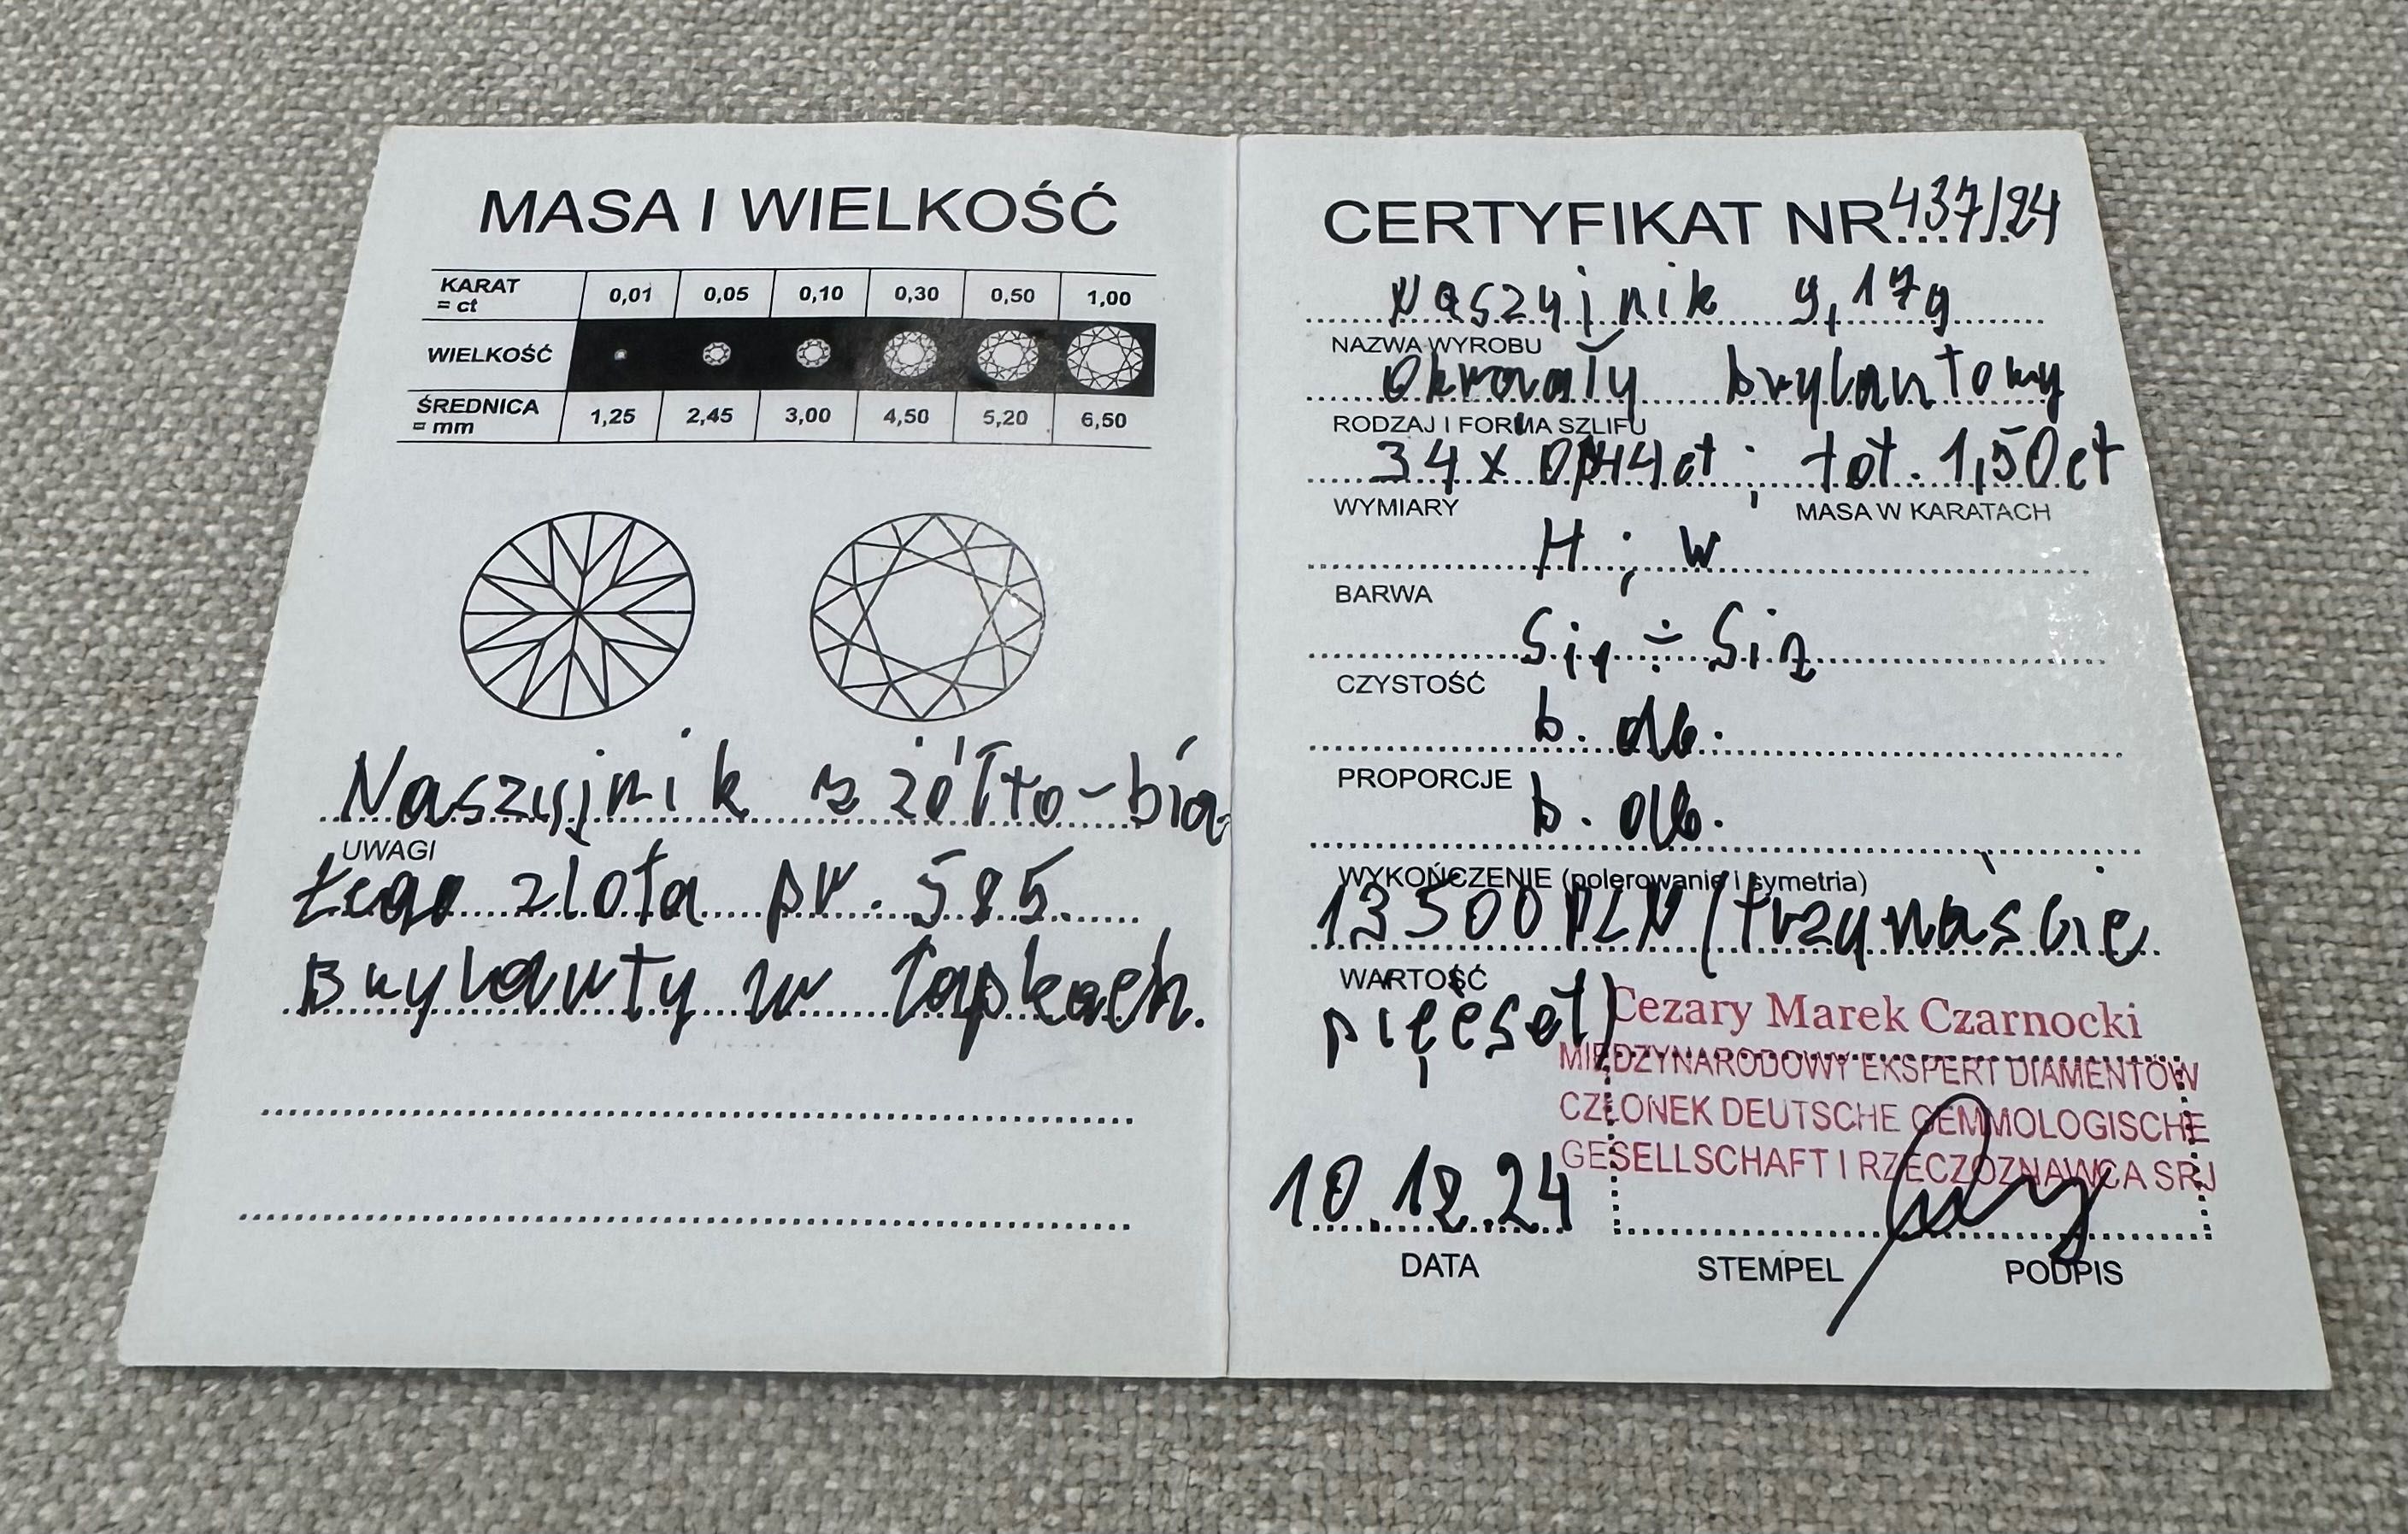 MASA I WIELKOŚĆ
KARAT = ct 0,01 0,05 0,10 0,30 0,50 1,00
WIELKOŚĆ
ŚREDNICA = mm 1,25 2,45 3,00 4,50 5,20 6,50
Naszyjnik z żółto-bia-
UWAGI
łego złota pr. 585.
Brylanty w łapkach.
CERTYFIKAT NR 437/24
Naszyjnik 9,17g
NAZWA WYROBU
Okrągły brylantowy
RODZAJ I FORMA SZLIFU
34 x ct ; tot. 1,50ct
WYMIARY MASA W KARATACH
H ; W
BARWA
Si1 ÷ Si2
CZYSTOŚĆ
b. db.
PROPORCJE
b. db.
WYKOŃCZENIE (polerowanie i symetria)
13500 PLN (trzynaście
WARTOŚĆ
pięćset)
Cezary Marek Czarnocki
MIĘDZYNARODOWY EKSPERT DIAMENTÓW
CZŁONEK DEUTSCHE GEMMOLOGISCHE
GESELLSCHAFT I RZECZOZNAWCA SRJ
10.12.24
DATA STEMPEL PODPIS